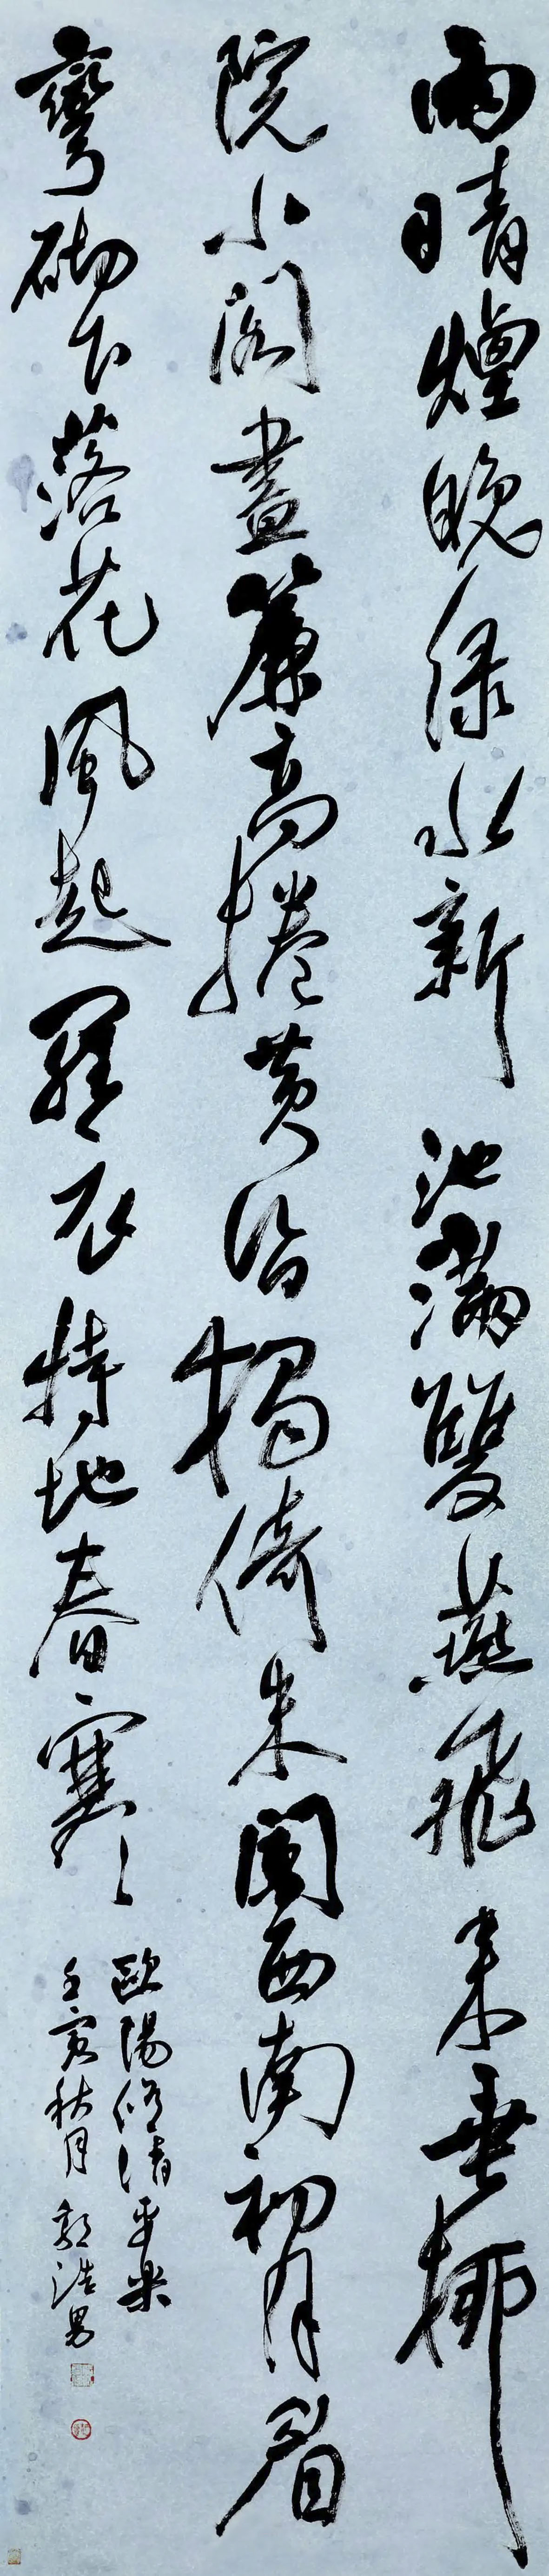 雨晴煙晚綠水新池滿雙燕飛來垂柳
院小閣畫簾高捲黃昏獨倚朱闌西南初月眉
彎砌下落花風起羅衣特地春寒
歐陽修清平樂
壬寅秋月郭浩男